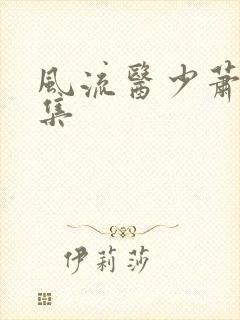 風流醫少蕭
集
伊莉莎